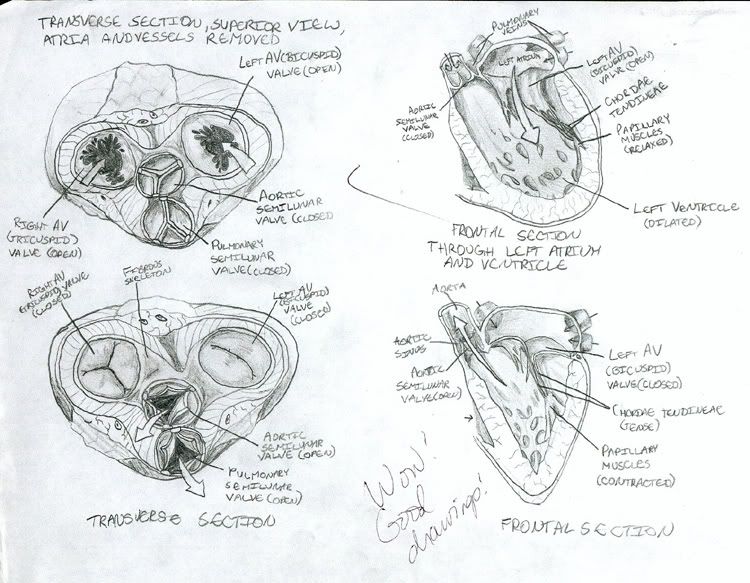 TRANSVERSE SECTION, SUPERIOR VIEW,
ATRIA AND VESSELS REMOVED
LEFT AV (BICUSPID)
VALVE (OPEN)
AORTIC
SEMILUNAR
VALVE (CLOSED)
RIGHT AV
(TRICUSPID)
VALVE (OPEN)
PULMONARY
SEMILUNAR
VALVE (CLOSED)
PULMONARY
VEINS
LEFT ATRIUM
LEFT AV
(BICUSPID)
VALVE (OPEN)
AORTIC
SEMILUNAR
VALVE
(CLOSED)
CHORDAE
TENDINEAE
PAPILLARY
MUSCLES
(RELAXED)
LEFT VENTRICLE
(DILATED)
FRONTAL SECTION
THROUGH LEFT ATRIUM
AND VENTRICLE
RIGHT AV
VALVE
(CLOSED)
FIBROUS
SKELETON
LEFT AV
(BICUSPID)
VALVE
(CLOSED)
AORTIC
SEMILUNAR
VALVE (OPEN)
PULMONARY
SEMILUNAR
VALVE (OPEN)
TRANSVERSE SECTION
AORTA
AORTIC
SINUS
AORTIC
SEMILUNAR
VALVE (OPEN)
LEFT AV
(BICUSPID)
VALVE (CLOSED)
CHORDAE TENDINEAE
(TENSE)
PAPILLARY
MUSCLES
(CONTRACTED)
FRONTAL SECTION
Wow!
Good
drawings!